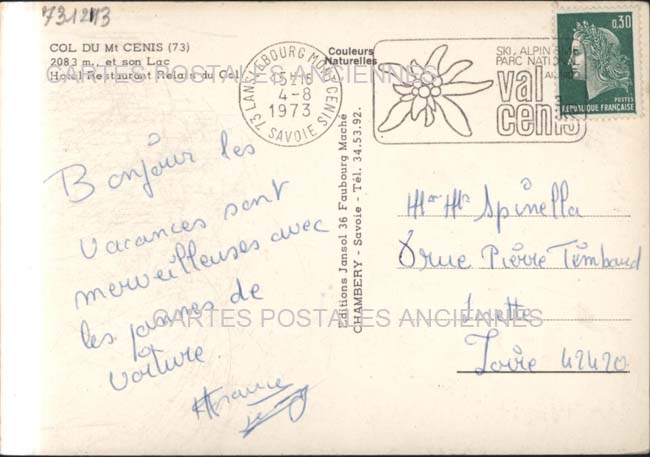 731213
COL DU Mt CENIS (73)
2083 m., et son Lac
Hotel Restaurant Relais du Col
Couleurs
Naturelles
73 LANSLEBOURG MONT CENIS
15H
4-8
1973
SAVOIE
SKI ALPIN
PARC NATIONAL
val
cenis
0,30
POSTES
REPUBLIQUE FRANÇAISE
CARTES POSTALES ANCIENNES
Bonjour les
vacances sont
merveilleuses avec
les pannes de
voiture
Editions Jansol 36 Faubourg Maché
CHAMBERY - Savoie - Tél. 34.53.92.
Spinella
8 rue Pierre Timbaud
Loire 42420
CARTES POSTALES ANCIENNES